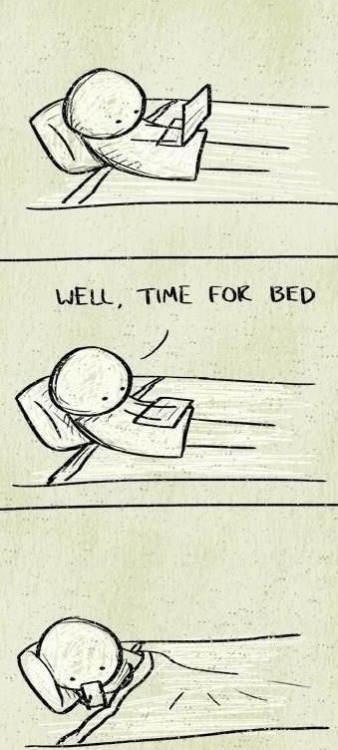 WELL, TIME FOR BED